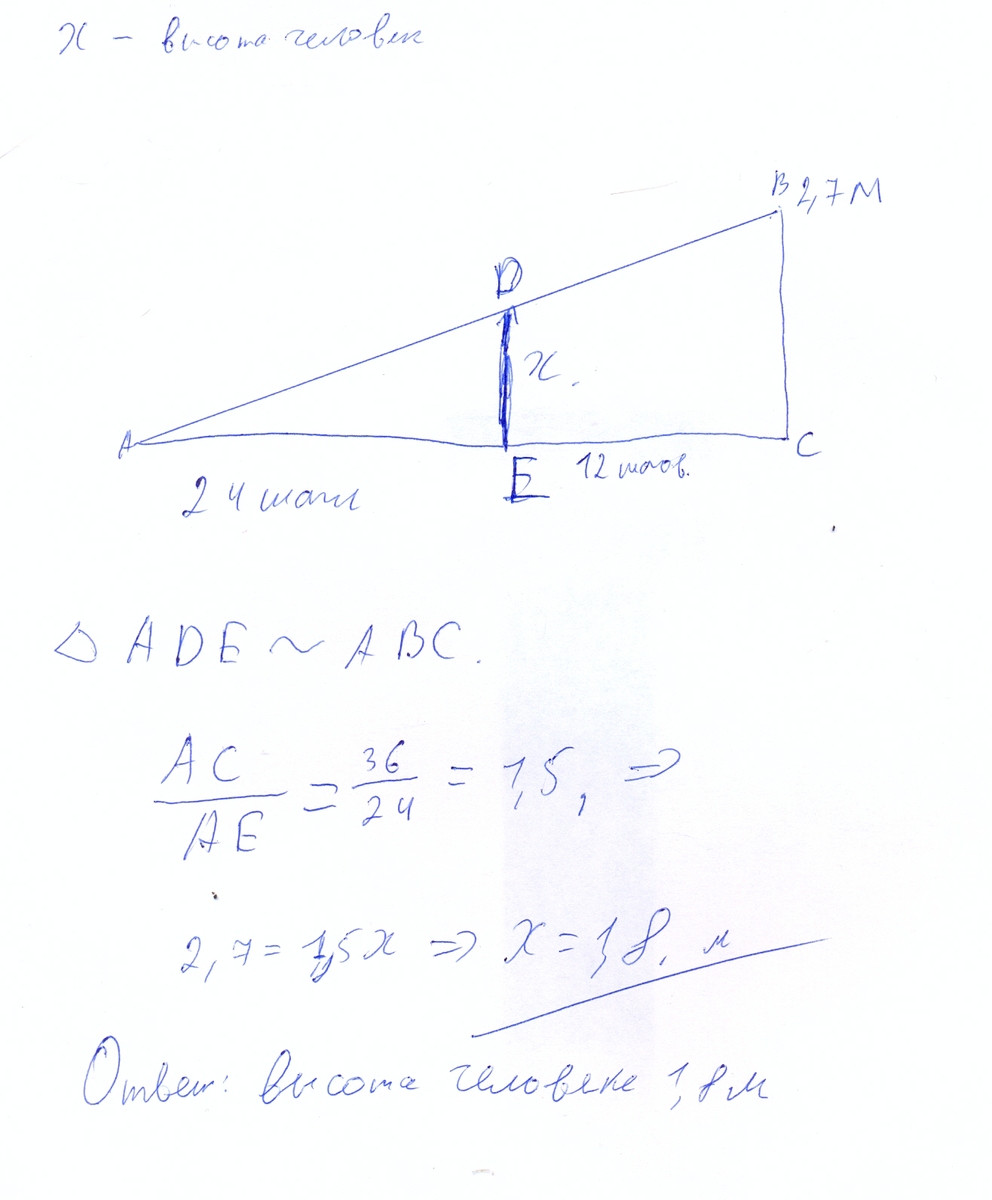 x – высота человек
B 2,7 м
D
x.
A
C
E
12 шагов.
24 шага
△ ADE ~ ABC.
AC/AE = 36/24 = 1,5, ⇒
2,7 = 1,5x ⇒ x = 1,8. м
Ответ: высота человека 1,8 м